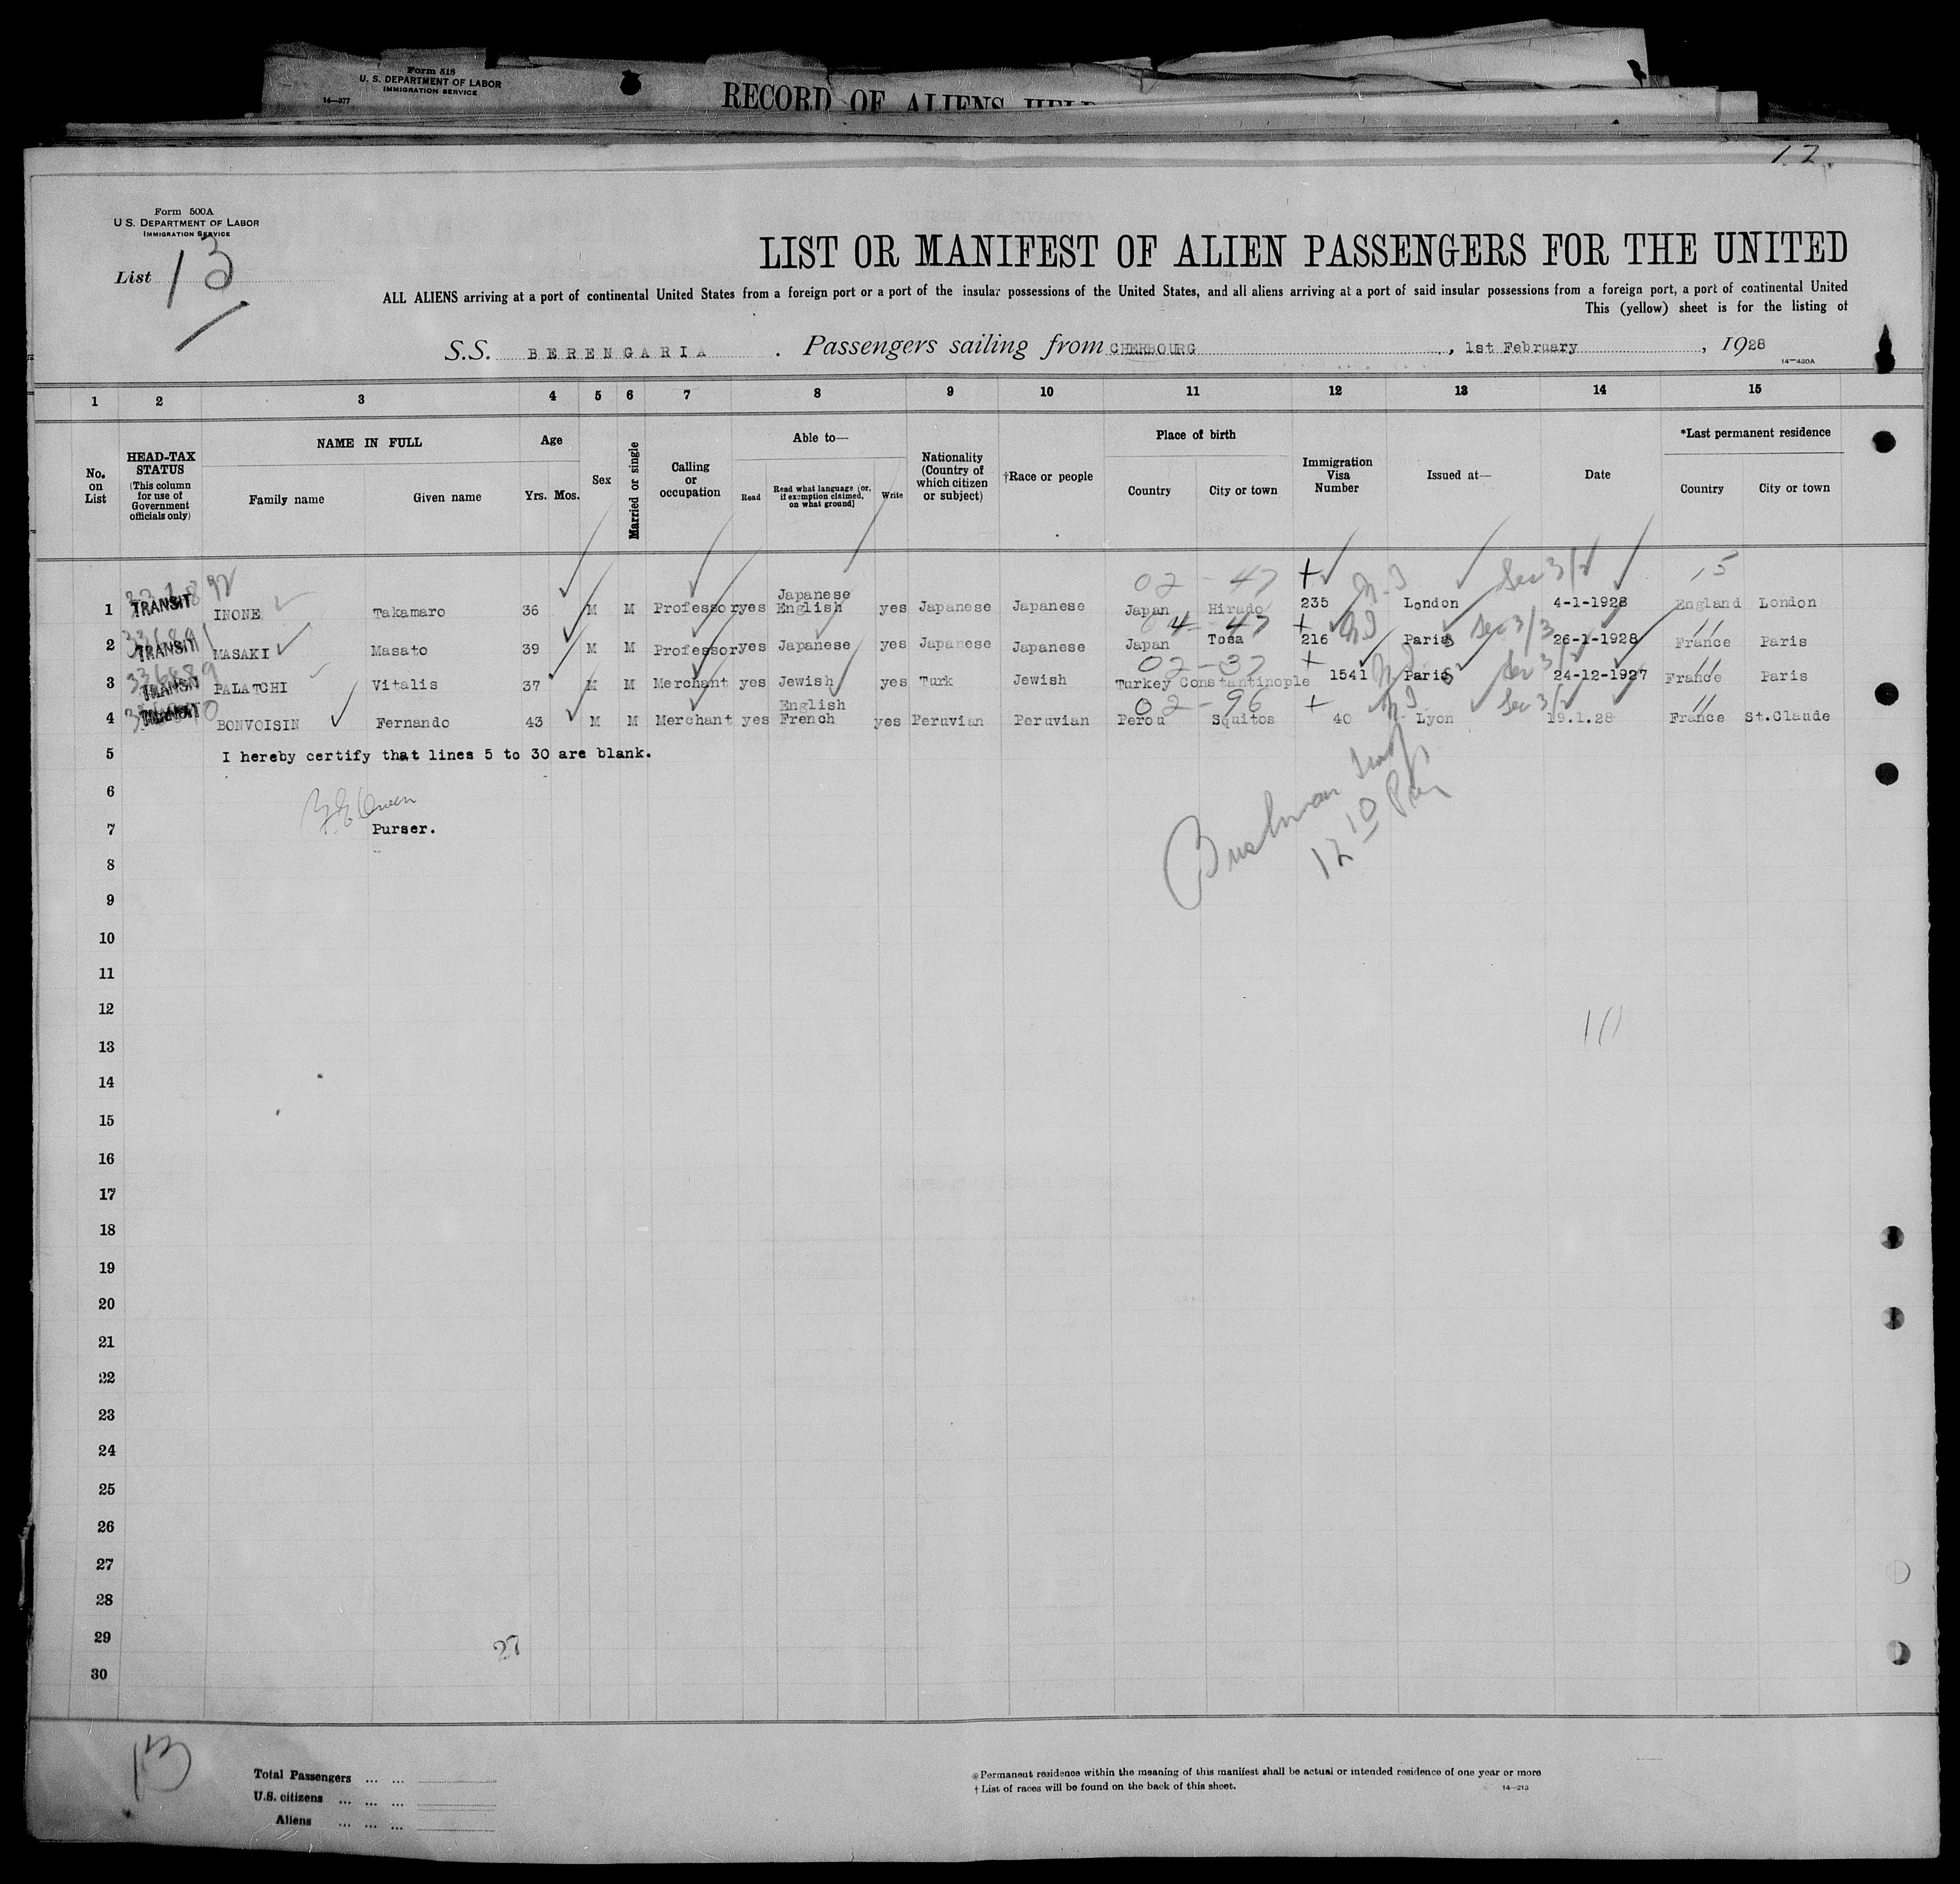 Form 518
U. S. DEPARTMENT OF LABOR
IMMIGRATION SERVICE
14—377
RECORD OF ALIENS HELD
12.
Form 500A
U. S. DEPARTMENT OF LABOR
IMMIGRATION SERVICE
List 13
LIST OR MANIFEST OF ALIEN PASSENGERS FOR THE UNITED
ALL ALIENS arriving at a port of continental United States from a foreign port or a port of the insular possessions of the United States, and all aliens arriving at a port of said insular possessions from a foreign port, a port of continental United
This (yellow) sheet is for the listing of
S.S. BERENGARIA . Passengers sailing from CHERBOURG , 1st February , 1928
14—430A
1 2 3 4 5 6 7 8 9 10 11 12 13 14 15
No. on List
HEAD-TAX STATUS (This column for use of Government officials only)
NAME IN FULL
Family name Given name
Age
Yrs. Mos.
Sex
Married or single
Calling or occupation
Able to—
Read Read what language (or, if exemption claimed, on what ground) Write
Nationality (Country of which citizen or subject)
†Race or people
Place of birth
Country City or town
Immigration Visa Number
Issued at—
Date
*Last permanent residence
Country City or town
02 - 47 15
1 TRANSIT INONE Takamaro 36 M M Professor yes Japanese English yes Japanese Japanese Japan Hirado 235 London Sec 3/2 4-1-1928 England London
47
2 TRANSIT MASAKI Masato 39 M M Professor yes Japanese yes Japanese Japanese Japan Tosa 216 Paris Sec 3/3 26-1-1928 France Paris
02-37 "
3 336889 TRANSIT PALATCHI Vitalis 37 M M Merchant yes Jewish yes Turk Jewish Turkey Constantinople 1541 Paris 24-12-1927 France Paris
02-96 "
4 TRANSIT BONVOISIN Fernando 43 M M Merchant yes English French yes Peruvian Peruvian Perou Squitos 40 Lyon Sec 3/2 19.1.28 France St.Claude
5 I hereby certify that lines 5 to 30 are blank.
6
7 Purser.
Bushman
12 10 Pm
8
9
10
11
12
13
14
15
16
17
18
19
20
21
22
23
24
25
26
27
28
29
27
30
13
Total Passengers ... ...
U.S. citizens ... ... ...
Aliens ... ... ...
*Permanent residence within the meaning of this manifest shall be actual or intended residence of one year or more
†List of races will be found on the back of this sheet.
14—213